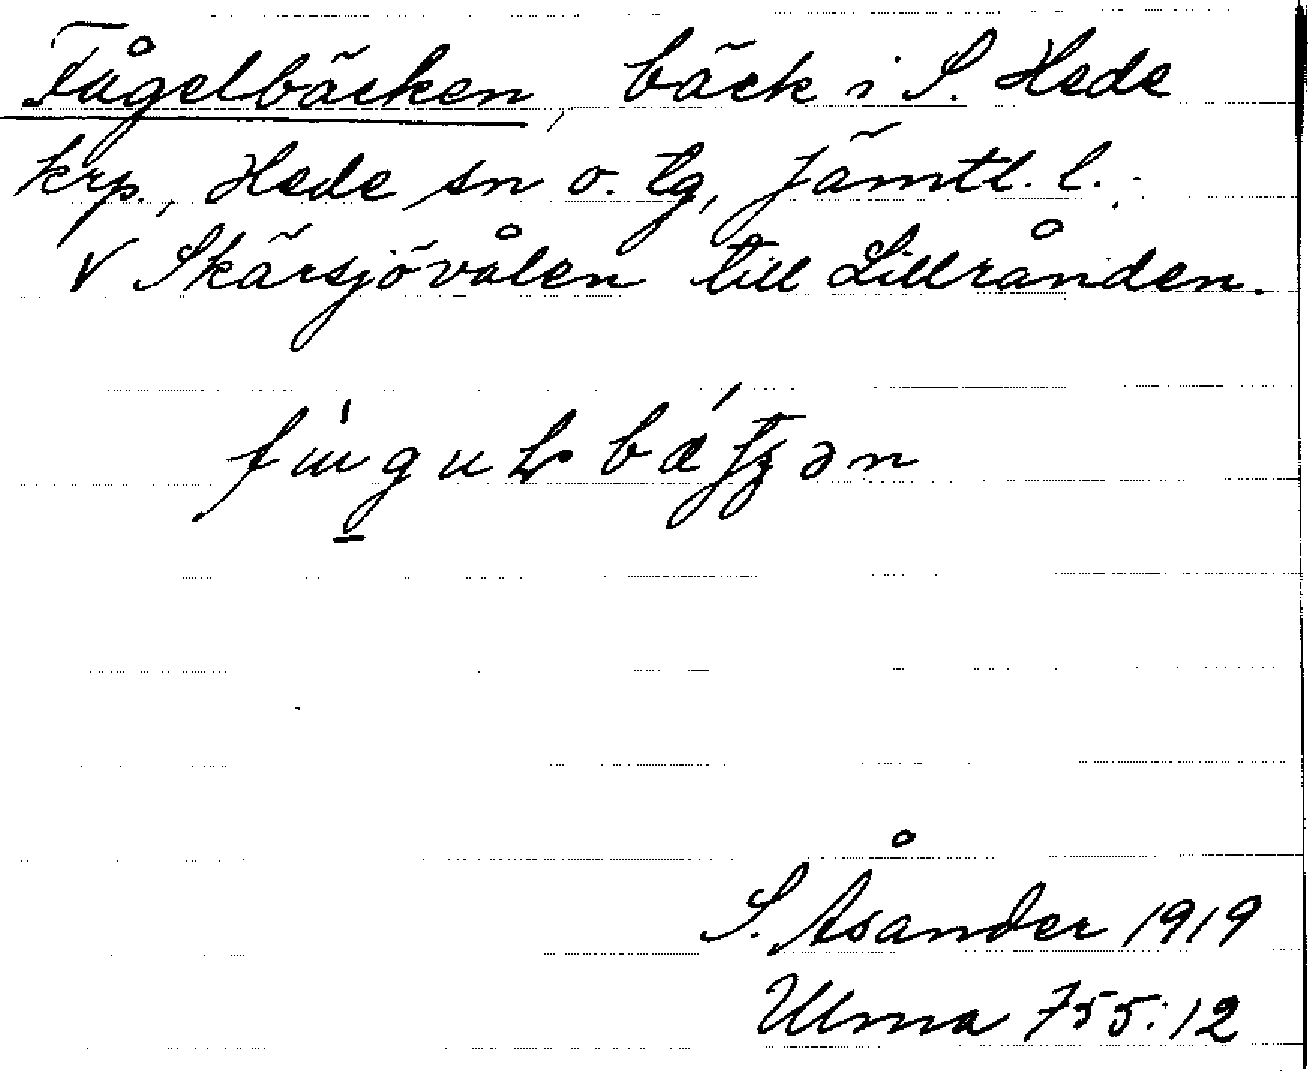 Fågelbäcken, bäck i S. Hede
krp., Hede sn o. tg, Jämtl. l.
V Skärsjövålen till Lillrånden.
S. Åsander 1919
Ulma 755:12